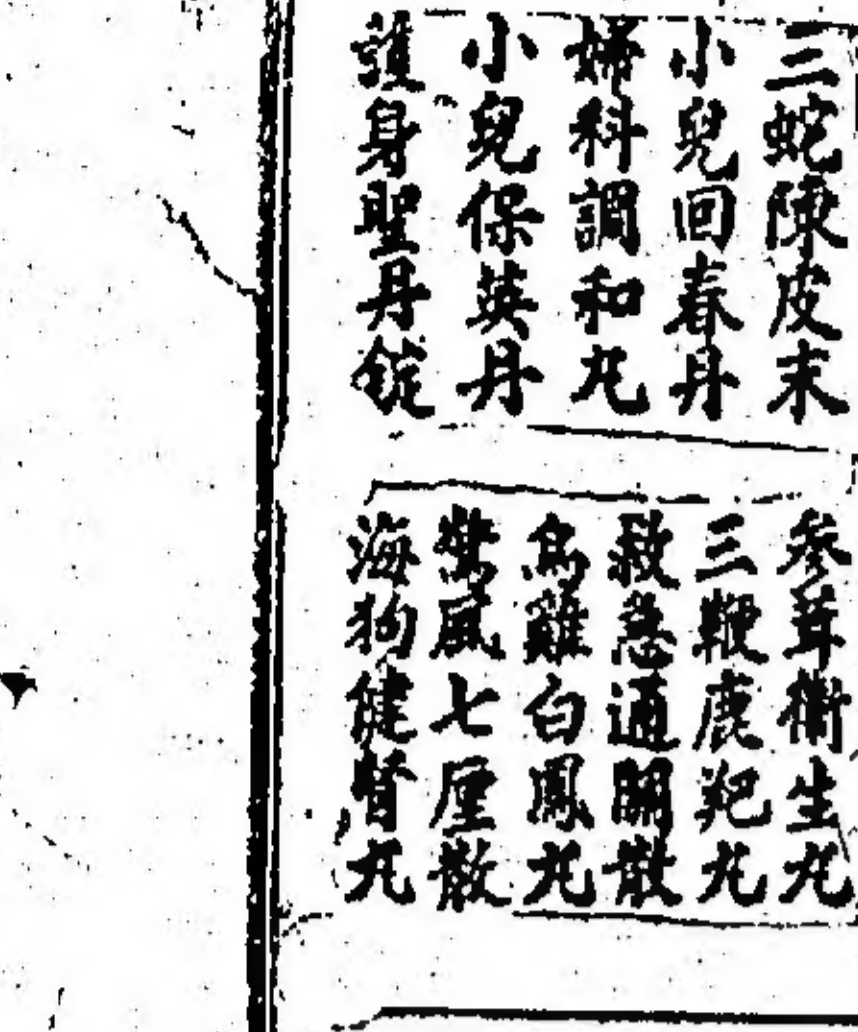 三蛇陳皮末
小兒回春丹
婦科調和丸
小兒保英丹
護身聖丹錠
參茸衛生丸
三鞭鹿羓丸
救急通關散
烏雞白鳳丸
驚風七厘散
海狗健腎丸